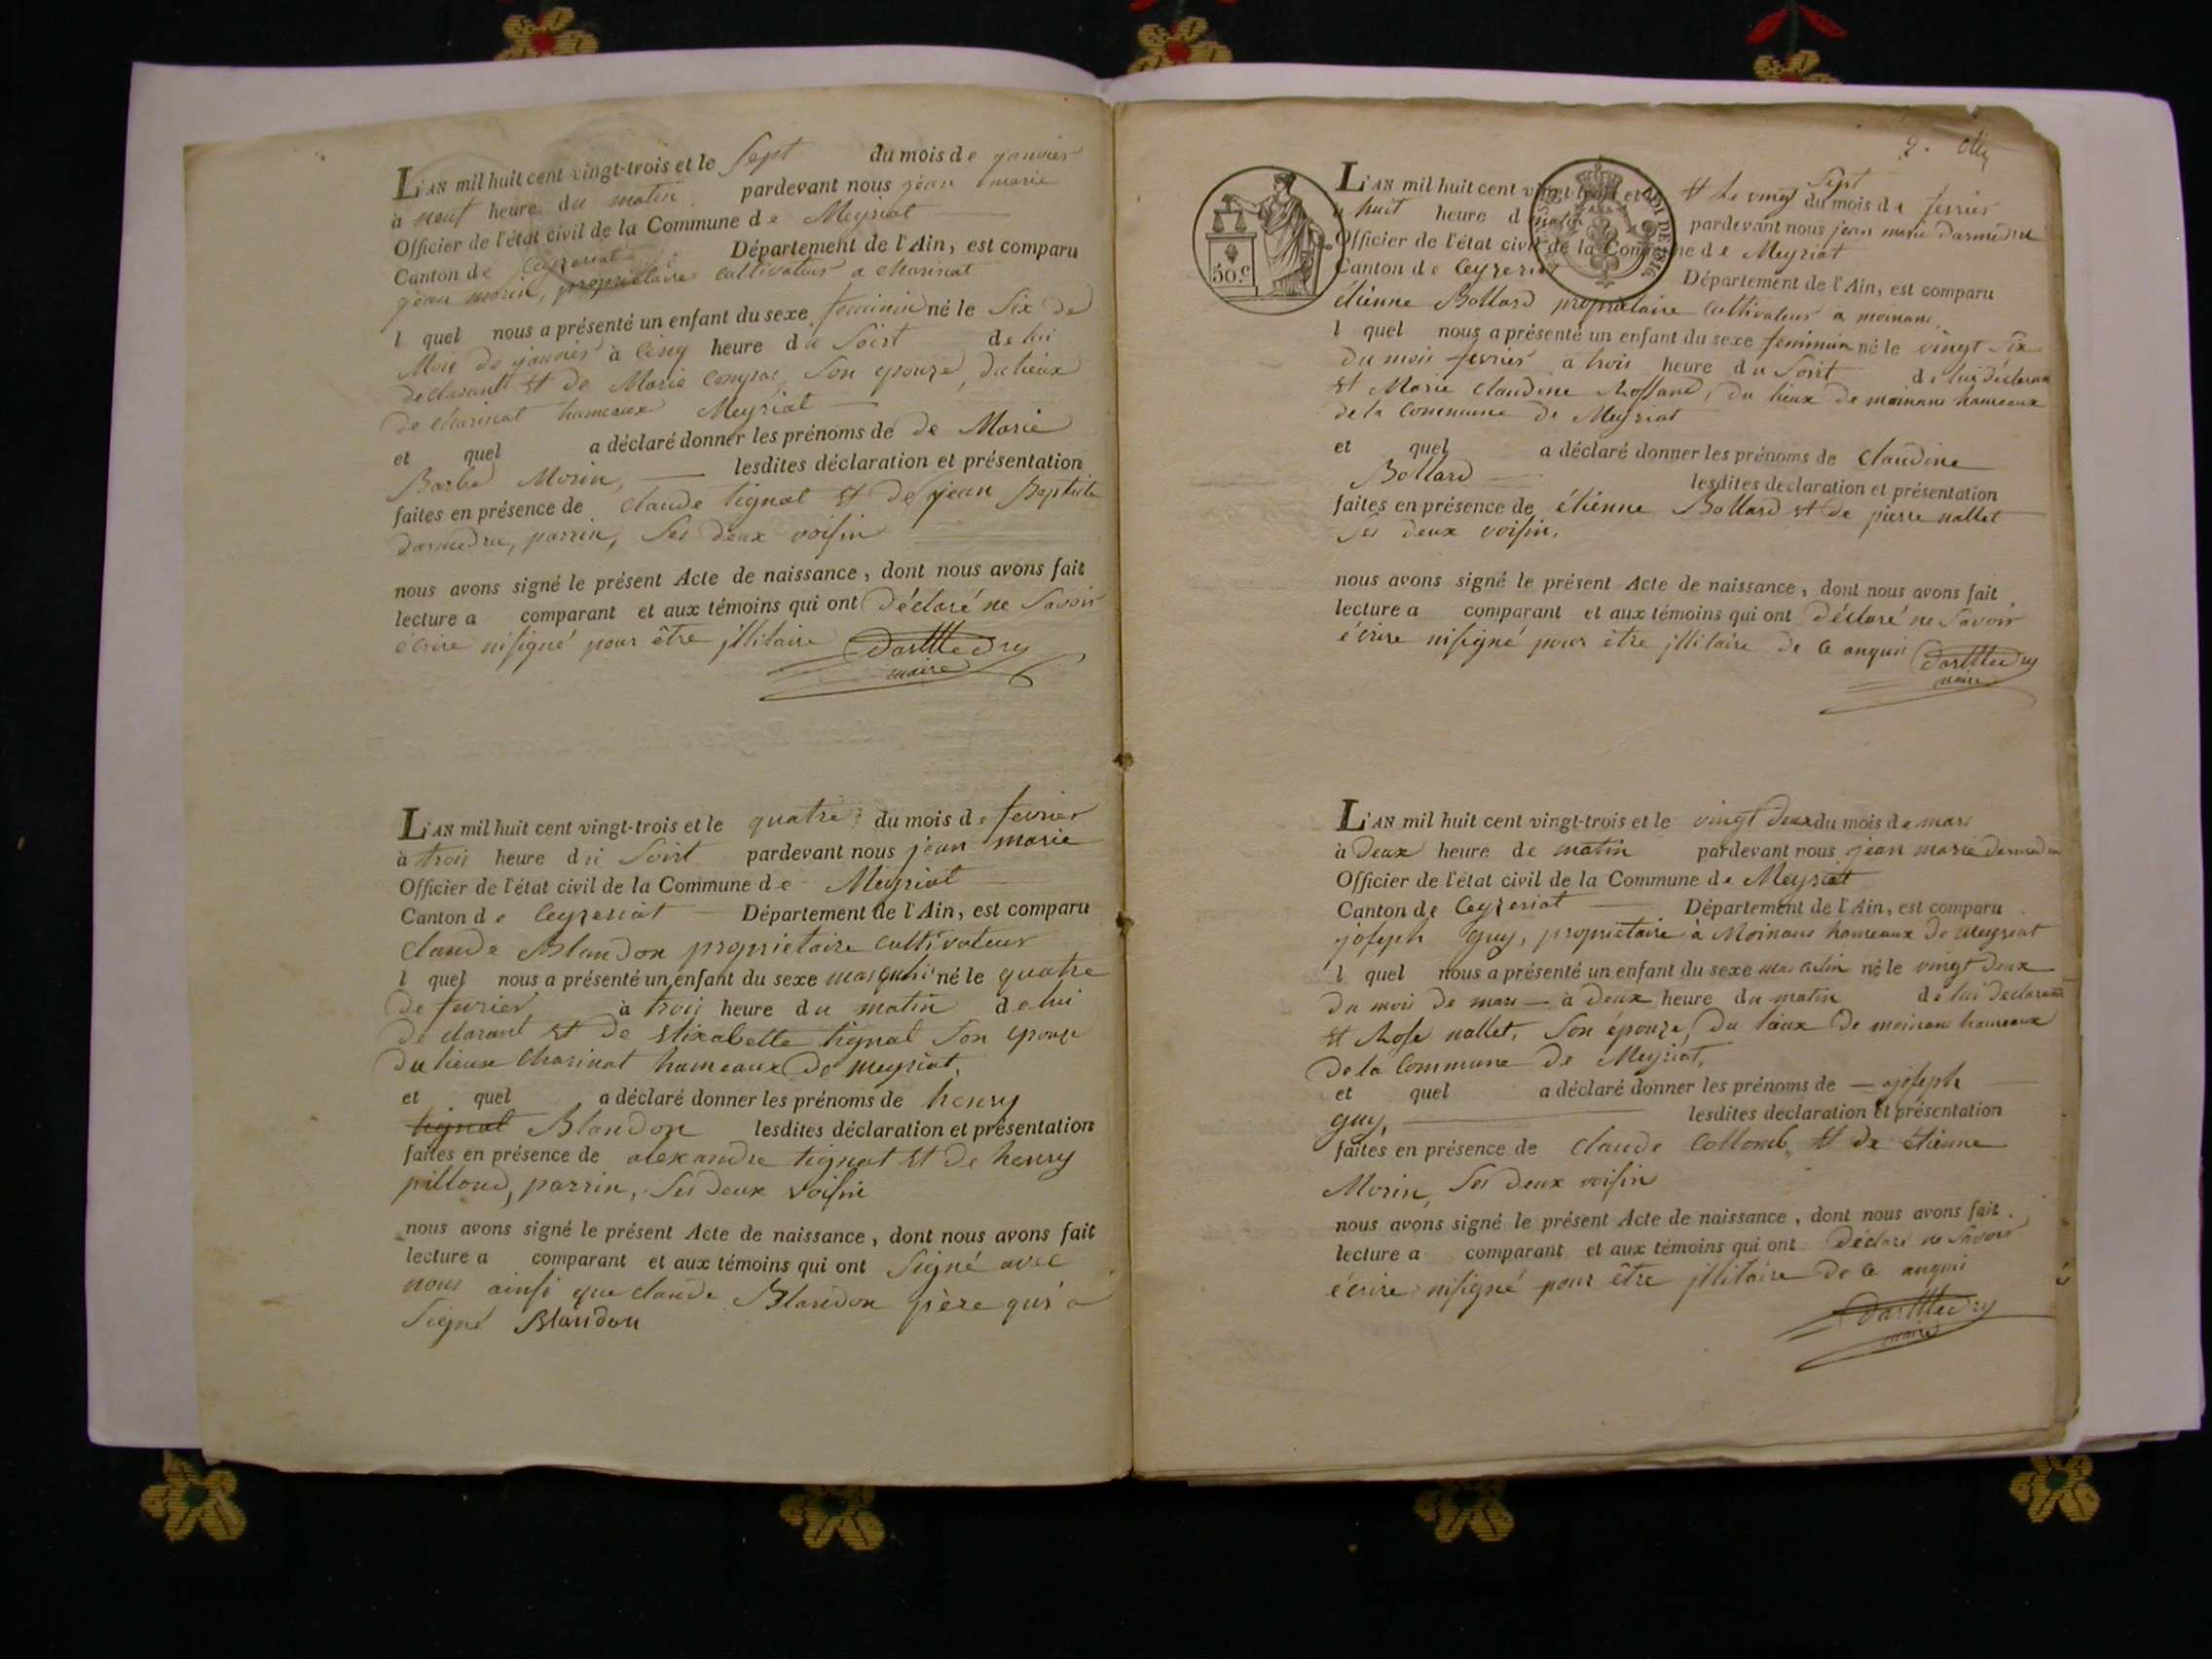 L'AN mil huit cent vingt-trois et le Sept du mois de janvier
à neuf heure du matin pardevant nous jean marie
Officier de l'état civil de la Commune de Meyriat
Canton de Ceyzeriat Département de l'Ain, est comparu
jean morin, propriétaire cultivateur a charinat
l quel nous a présenté un enfant du sexe feminin né le Six de
Mois de janvier à Cinq heure du Soirt de lui
declarant et de Marie Son epouze, du lieux
de charinat hameaux Meyriat
et quel a déclaré donner les prénoms de de Marie
Barbe Morin, lesdites déclaration et présentation
faites en présence de Claude tignat et de jean Baptiste
darmedru, parrin, Ses deux voisin
nous avons signé le présent Acte de naissance, dont nous avons fait
lecture a comparant et aux témoins qui ont Déclaré ne Savoir
écrire nisigné pour être jllitaire
maire
L'AN mil huit cent vingt-trois et le quatre du mois de fevrier
à trois heure du Soirt pardevant nous jean marie
Officier de l'état civil de la Commune de Meyriat
Canton de Ceyzeriat Département de l'Ain, est comparu
Claude Blandon proprietaire Cultivateur
l quel nous a présenté un enfant du sexe masqulin né le quatre
de fevrier à trois heure du matin de lui
declarant et de Elixabette tignat Son epouze
du lieux Charinat hameaux de meyriat,
et quel a déclaré donner les prénoms de henry
tignat Blandon lesdites déclaration et présentation
faites en présence de alexandre tignat et de henry
pilloud, parrin, Ses deux voisin
nous avons signé le présent Acte de naissance, dont nous avons fait
lecture a comparant et aux témoins qui ont Signé avec
nous ainsi que claude Blandon père qui a
Signé Blandon
2.
50.C
L'AN mil huit cent vingt-trois et et le vingt Sept du mois de fevrier
a huit heure d matin pardevant nous jean marie darmedru
Officier de l'état civil de la Commune de Meyriat
Canton de Ceyzeriat Département de l'Ain, est comparu
étienne Bollard propriétaire Cultivateur a moinans
l quel nous a présenté un enfant du sexe feminin né le vingt Six
du mois fevrier a trois heure du Soirt de lui déclarant
et Marie Claudine, du lieux de moinans hameaux
de la Commune de Meyriat
et quel a déclaré donner les prénoms de Claudine
Bollard lesdites declaration et présentation
faites en présence de étienne Bollard et de pierre nallet
Ses deux voisin,
nous avons signé le présent Acte de naissance, dont nous avons fait
lecture a comparant et aux témoins qui ont Déclaré ne Savoir
écrire nisigné pour être jllitaire de Ce anquis
maire
L'AN mil huit cent vingt-trois et le vingt deux du mois de mars
à Deux heure de matin pardevant nous jean marie darmedru
Officier de l'état civil de la Commune de Meyriat
Canton de Ceyzeriat Département de l'Ain, est comparu
joseph guy, proprietaire à Moinans hameaux de meyriat
l quel nous a présenté un enfant du sexe masculin né le vingt deux
du mois de mars à deux heure du matin de lui declarant
et Rose nallet, Son épouze, du lieux de moinans hameaux
de la Commune de Meyriat,
et quel a déclaré donner les prénoms de joseph
guy, lesdites declaration et présentation
faites en présence de Claude Collomb, et de étienne
Morin, Ses deux voisin
nous avons signé le présent Acte de naissance, dont nous avons fait
lecture a comparant et aux témoins qui ont Déclaré ne Savoir
écrire nisigné pour être jllitaire de Ce anquis
maire